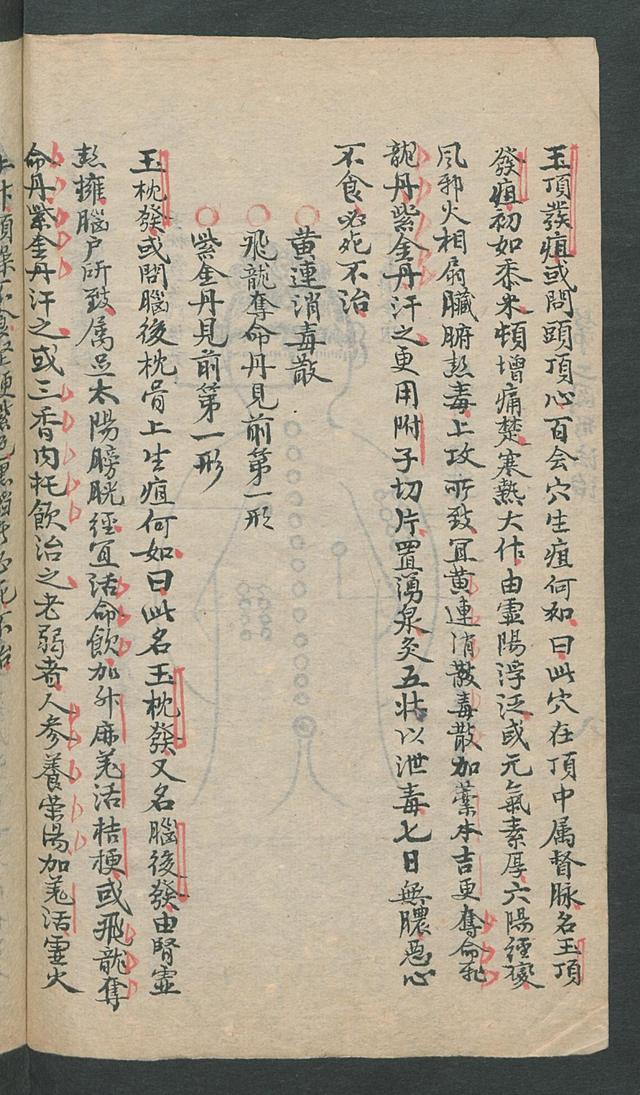 玉頂發疽或問頭頂心百會穴生疽何如曰此穴在頂中属督脉名玉頂
發疽初如黍米頓增痛楚寒熱大作由虛陽浮泛或元氣素厚六陽經
風邪火相扇臟腑熱毒上攻所致宜黃連消散毒散加藁本吉更奪命飛
龍丹紫金丹汗之更用附子切片置湧泉灸五壯以泄毒七日無膿惡心
不食必死不治
黃連消毒散
飛龍奪命丹見前第一形
紫金丹見前第一形
玉枕發或問腦後枕骨上生疽何如曰此名玉枕發又名腦後發由腎虛
熱擁腦户所致属足太陽膀胱經宜活命飲加升麻羌活桔梗或飛龍奪
命丹紫金丹汗之或三香内托飲治之老弱者人参養荣湯加羌活虛火